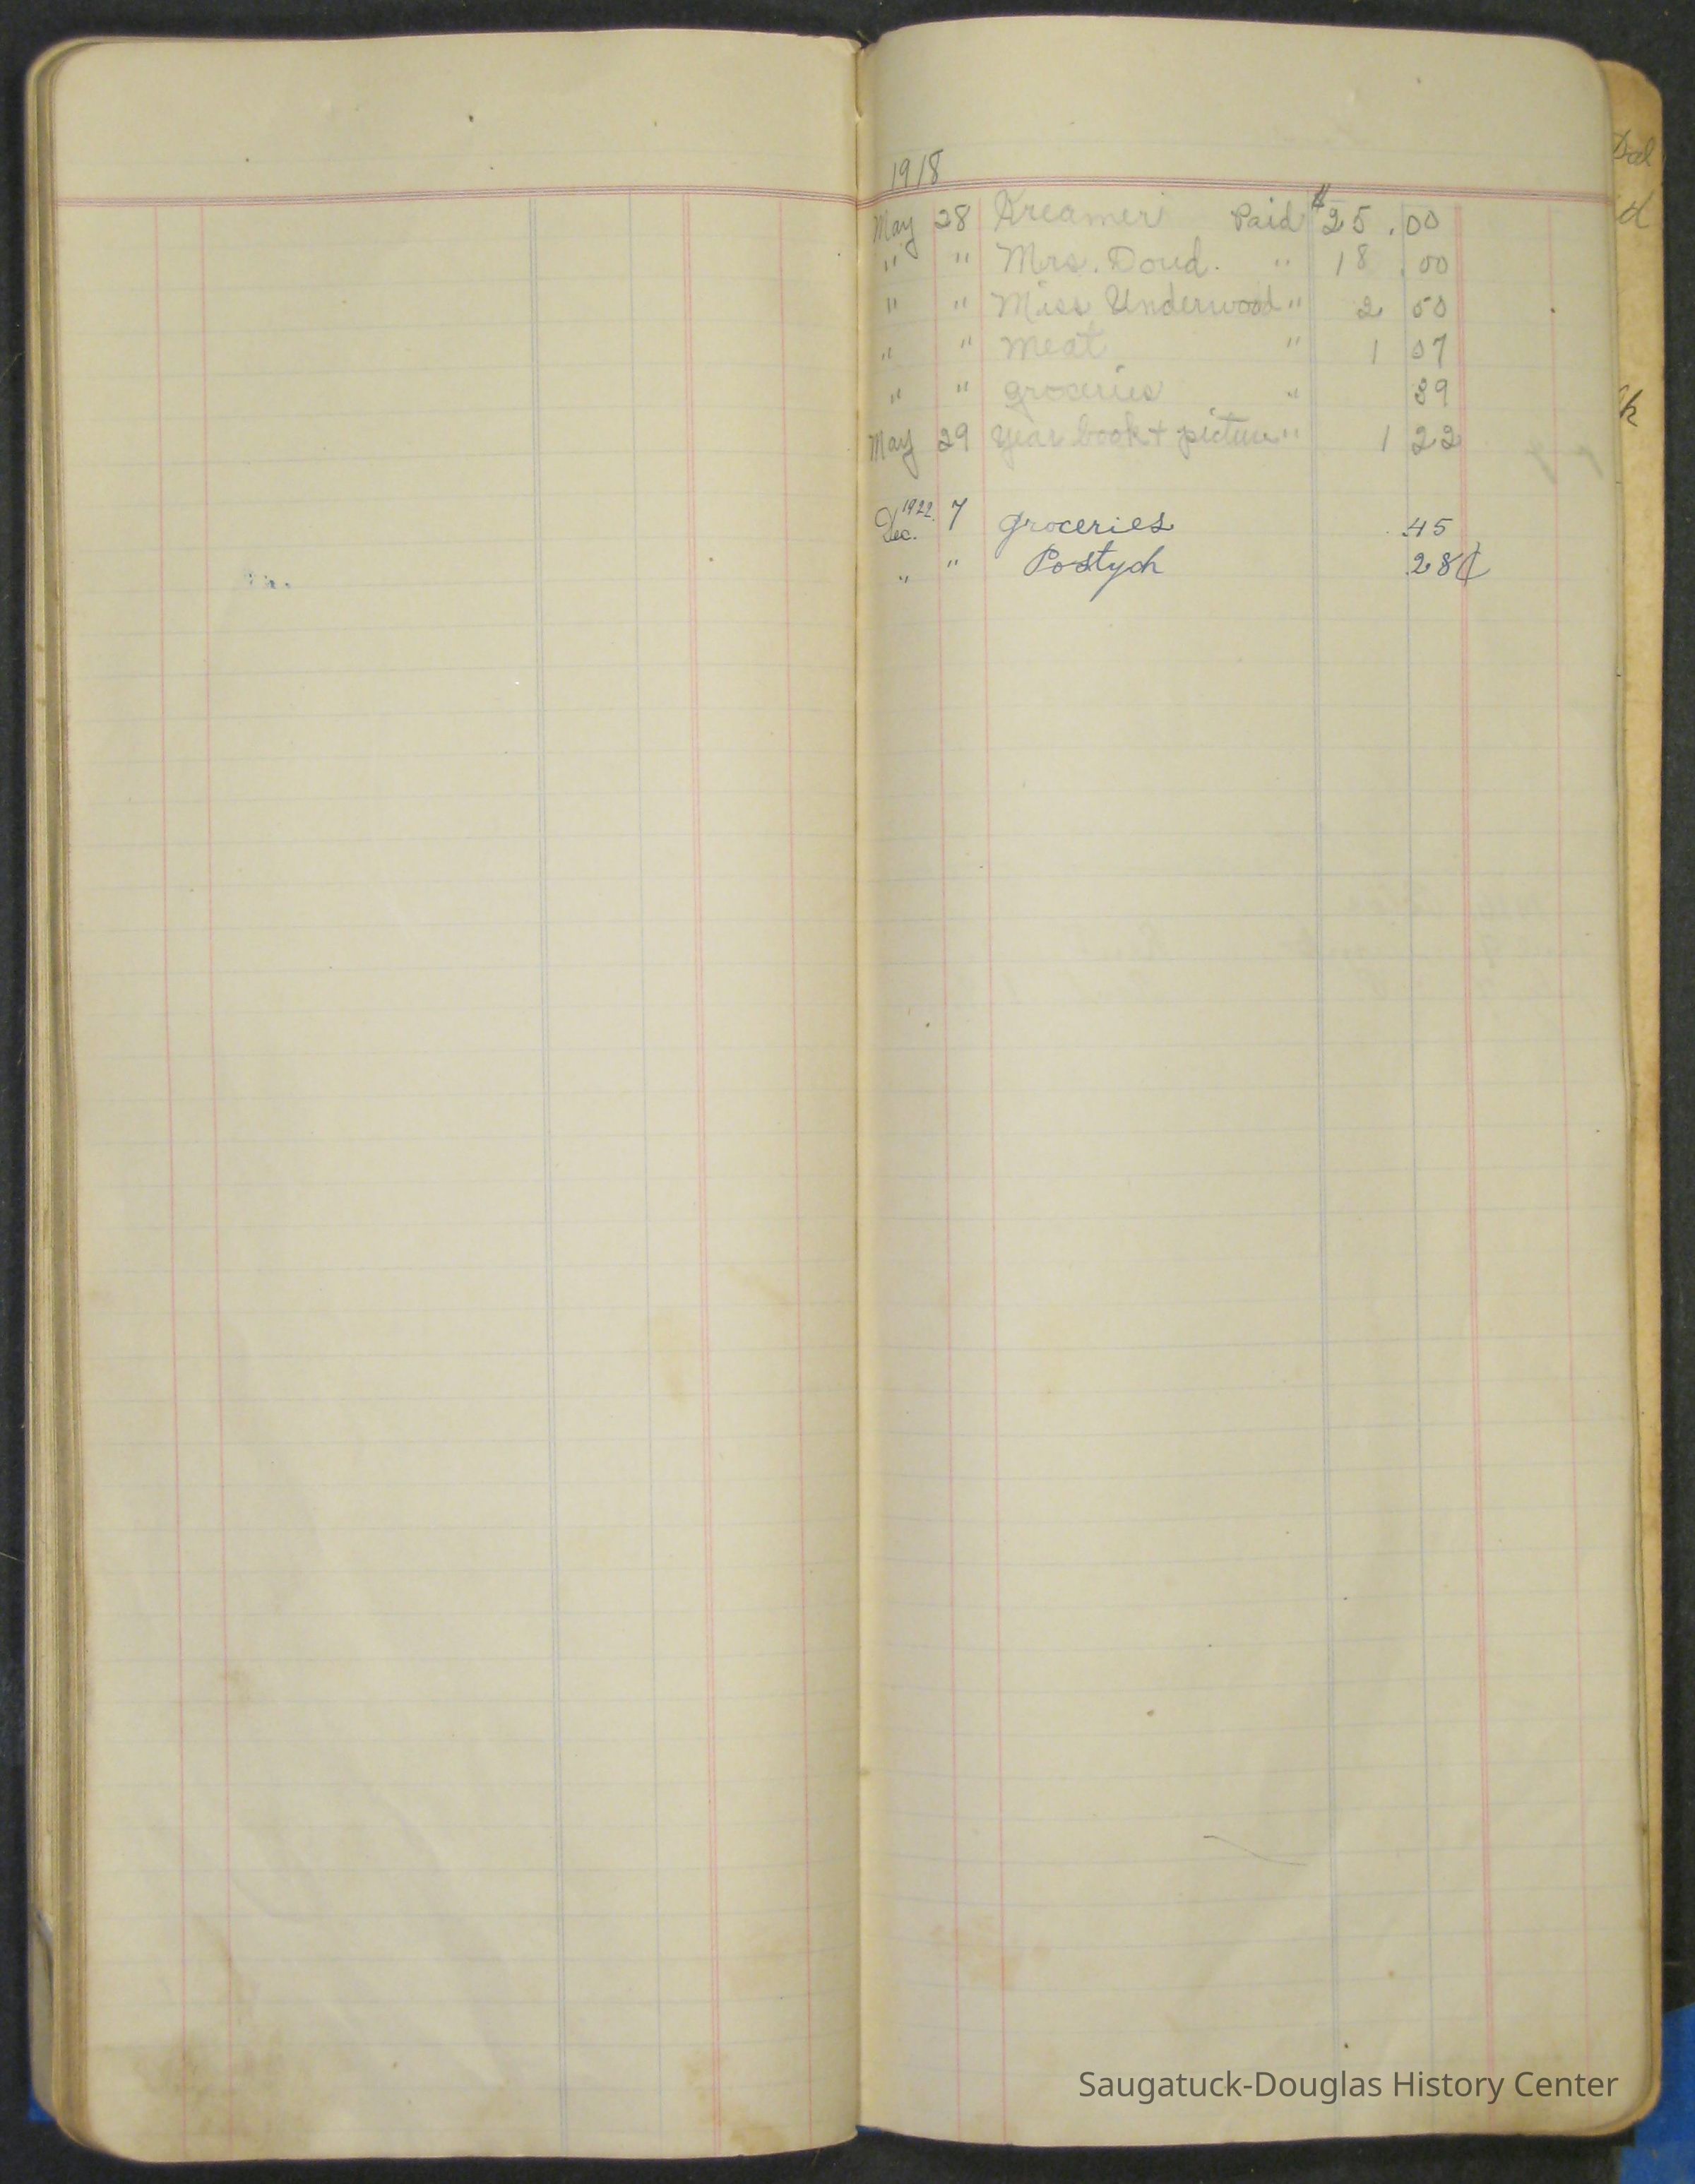 1918
May 28 Kreamer Paid $25.00
" " Mrs. Doud. " 18.00
" " Miss Underwood " 2 50
" " Meat " 1 07
" " groceries " 39
May 29 Year book + picture " 1 22
1922.
Dec. 7 groceries .45
" " Postych .28¢
Saugatuck-Douglas History Center